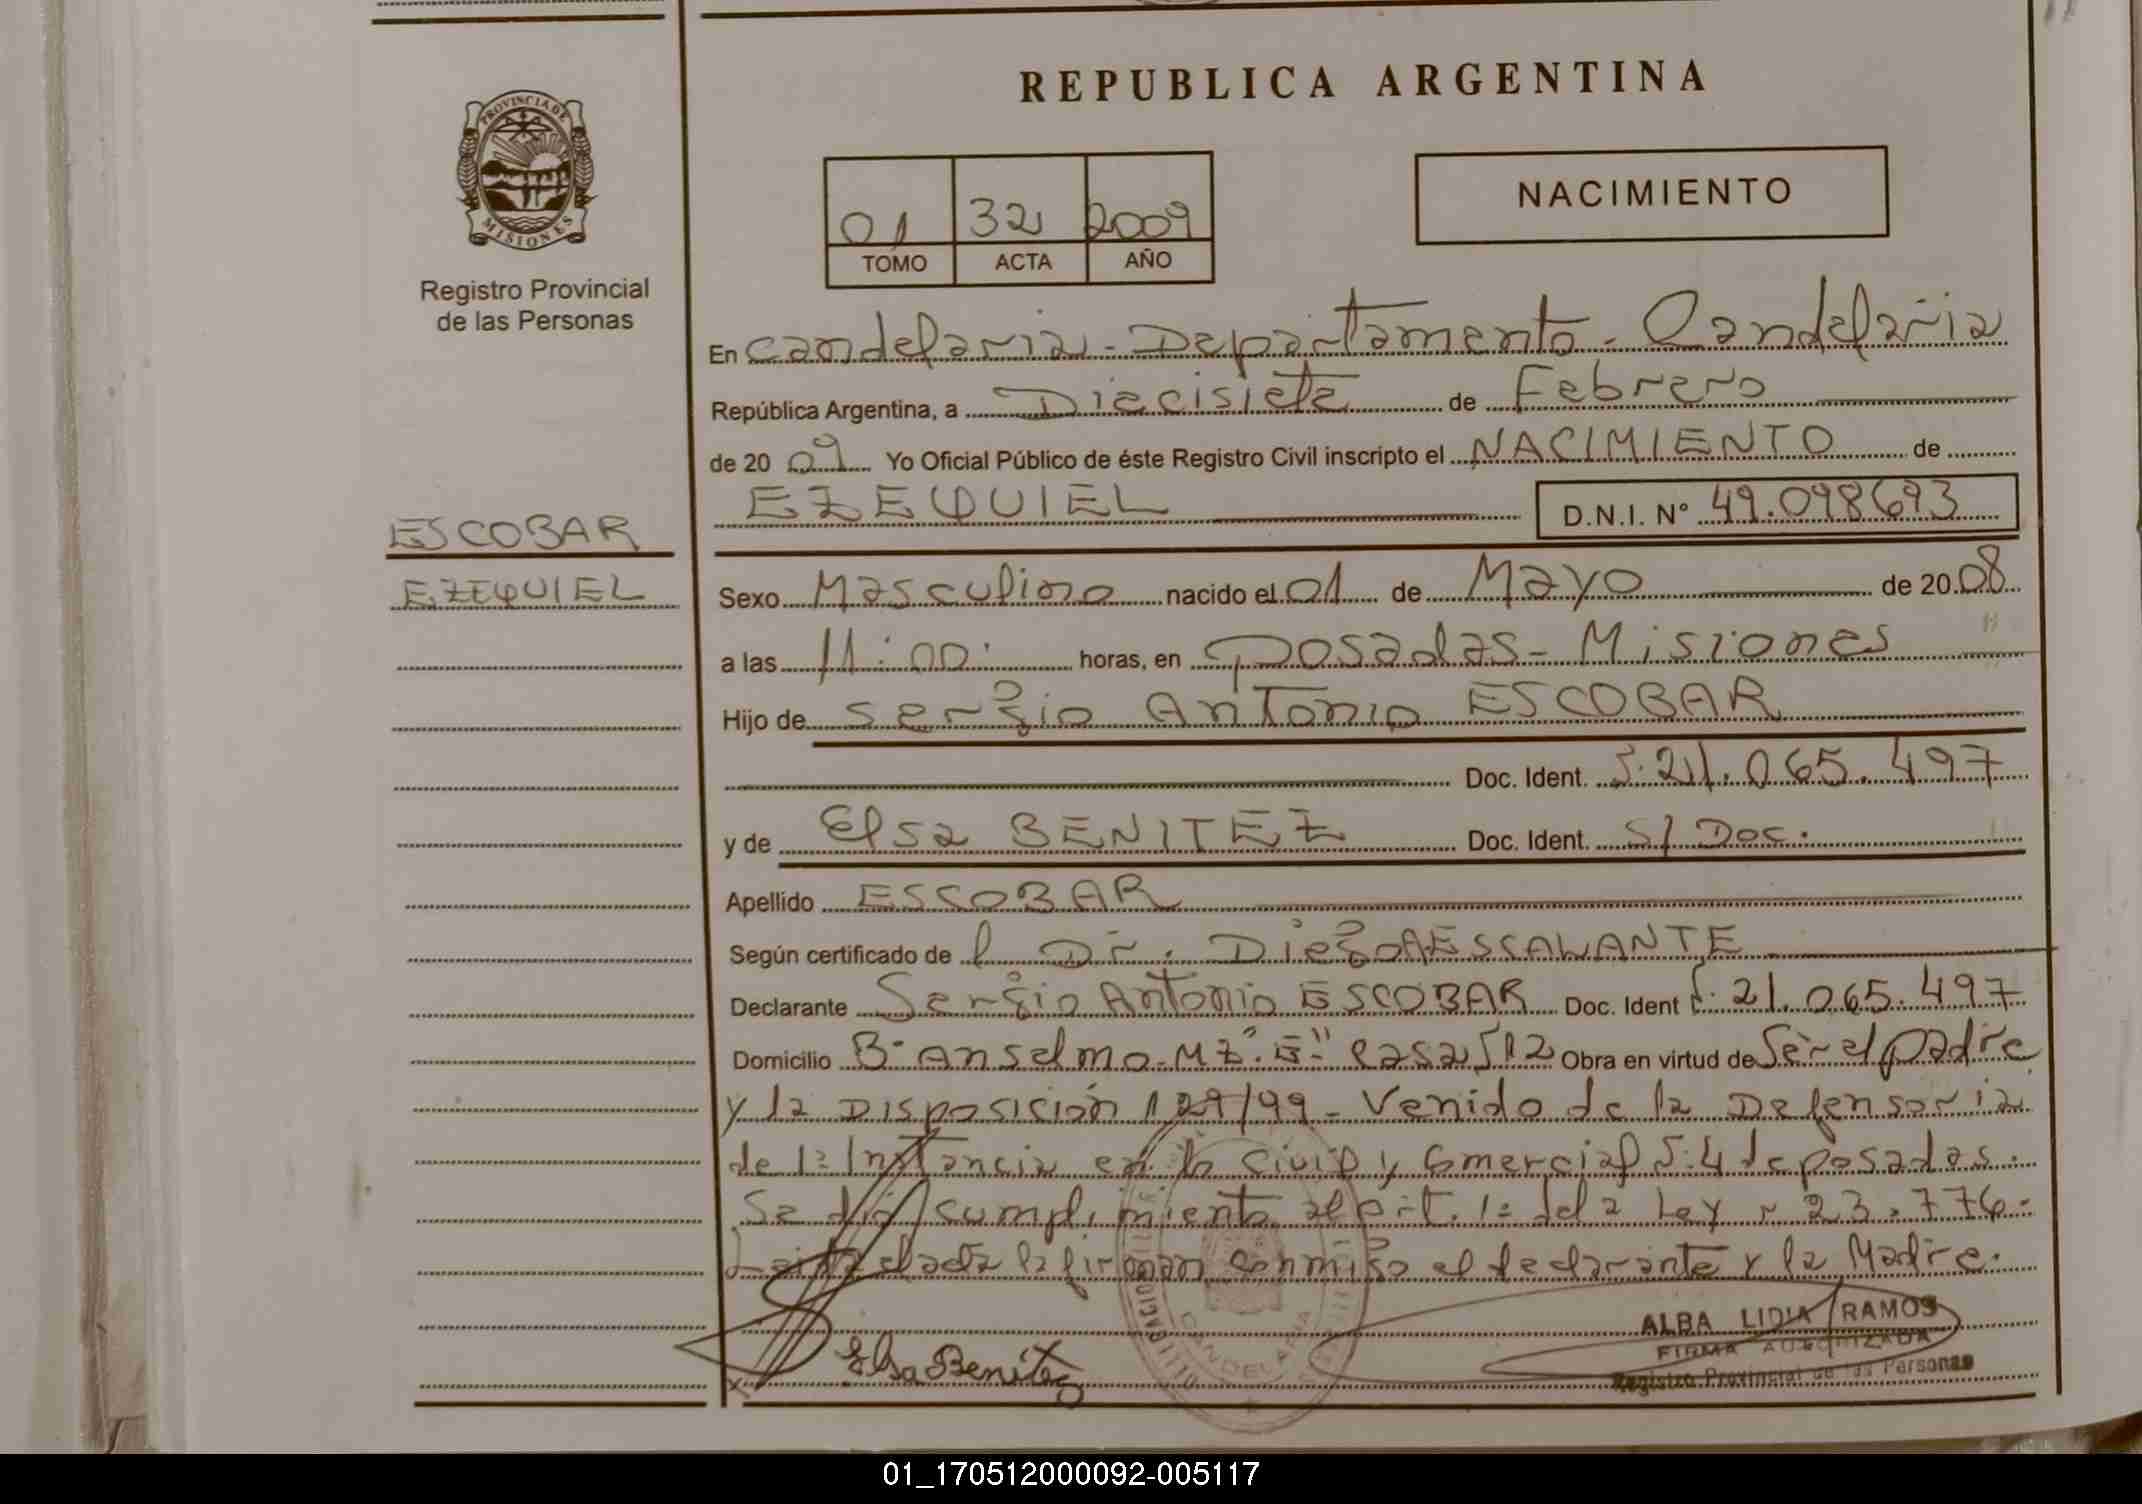 REPUBLICA ARGENTINA
PROVINCIA DE
MISIONES
Registro Provincial
de las Personas
01 32 2009
TOMO ACTA AÑO
NACIMIENTO
En Candelaria - Departamento - Candelaria
República Argentina, a Diecisiete de Febrero
de 2009 Yo Oficial Público de éste Registro Civil inscripto el NACIMIENTO de
EZEQUIEL D.N.I. N° 49.098693
ESCOBAR
EZEQUIEL
Sexo Masculino nacido el 01 de Mayo de 20 08
a las 11:00 horas, en Posadas - Misiones
Hijo de Sergio Antonio ESCOBAR
Doc. Ident. 21.065.497
y de Elsa BENITEZ Doc. Ident. S/Doc.
Apellido ESCOBAR
Según certificado de l Dr. Diego A ESCALANTE
Declarante Sergio Antonio ESCOBAR Doc. Ident 21.065.497
Domicilio B° Anselmo - MZ "E" casa 512 Obra en virtud de Ser el padre
y la Disposición 129/99 - Venido de la Defensoria
de 1ª Instancia en lo Civil y Comercial 4 de posadas.
Se dió cumplimiento al Art. 1° de la Ley 23.776 -
Leida el acta la firman conmigo el declarante y la Madre.
Elsa Benitez
CANDELARIA
ALBA LIDIA RAMOS
FIRMA AUTORIZADA
Registro Provincial de las Personas
01_170512000092-005117